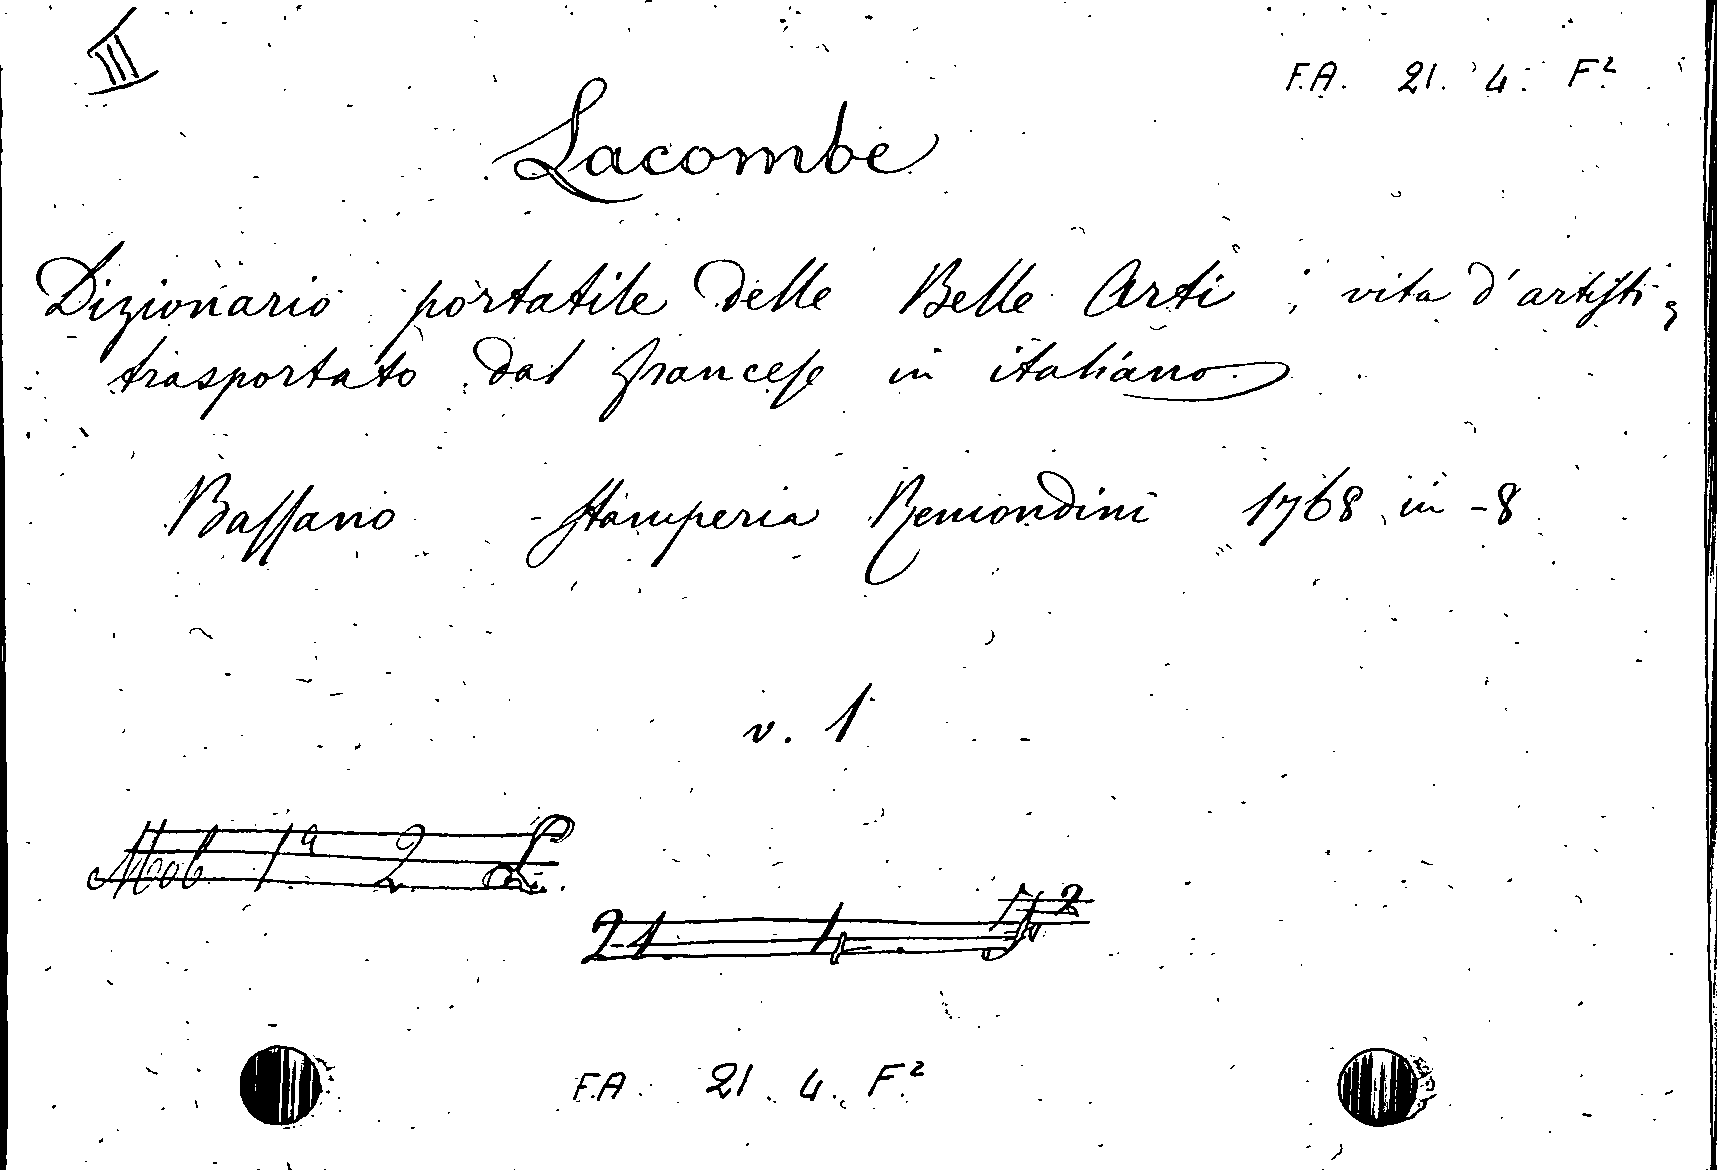 III
F.A. 21. 4. F²
Lacombe
Dizionario portatile delle Belle Arti; vita d'artisti,
trasportato dal francese in italiano
Bassano - Stamperia Remondini 1768 in-8
v. 1
Mob 1ª 2. L.
21 4. F²
F.A. 21. 4. F²